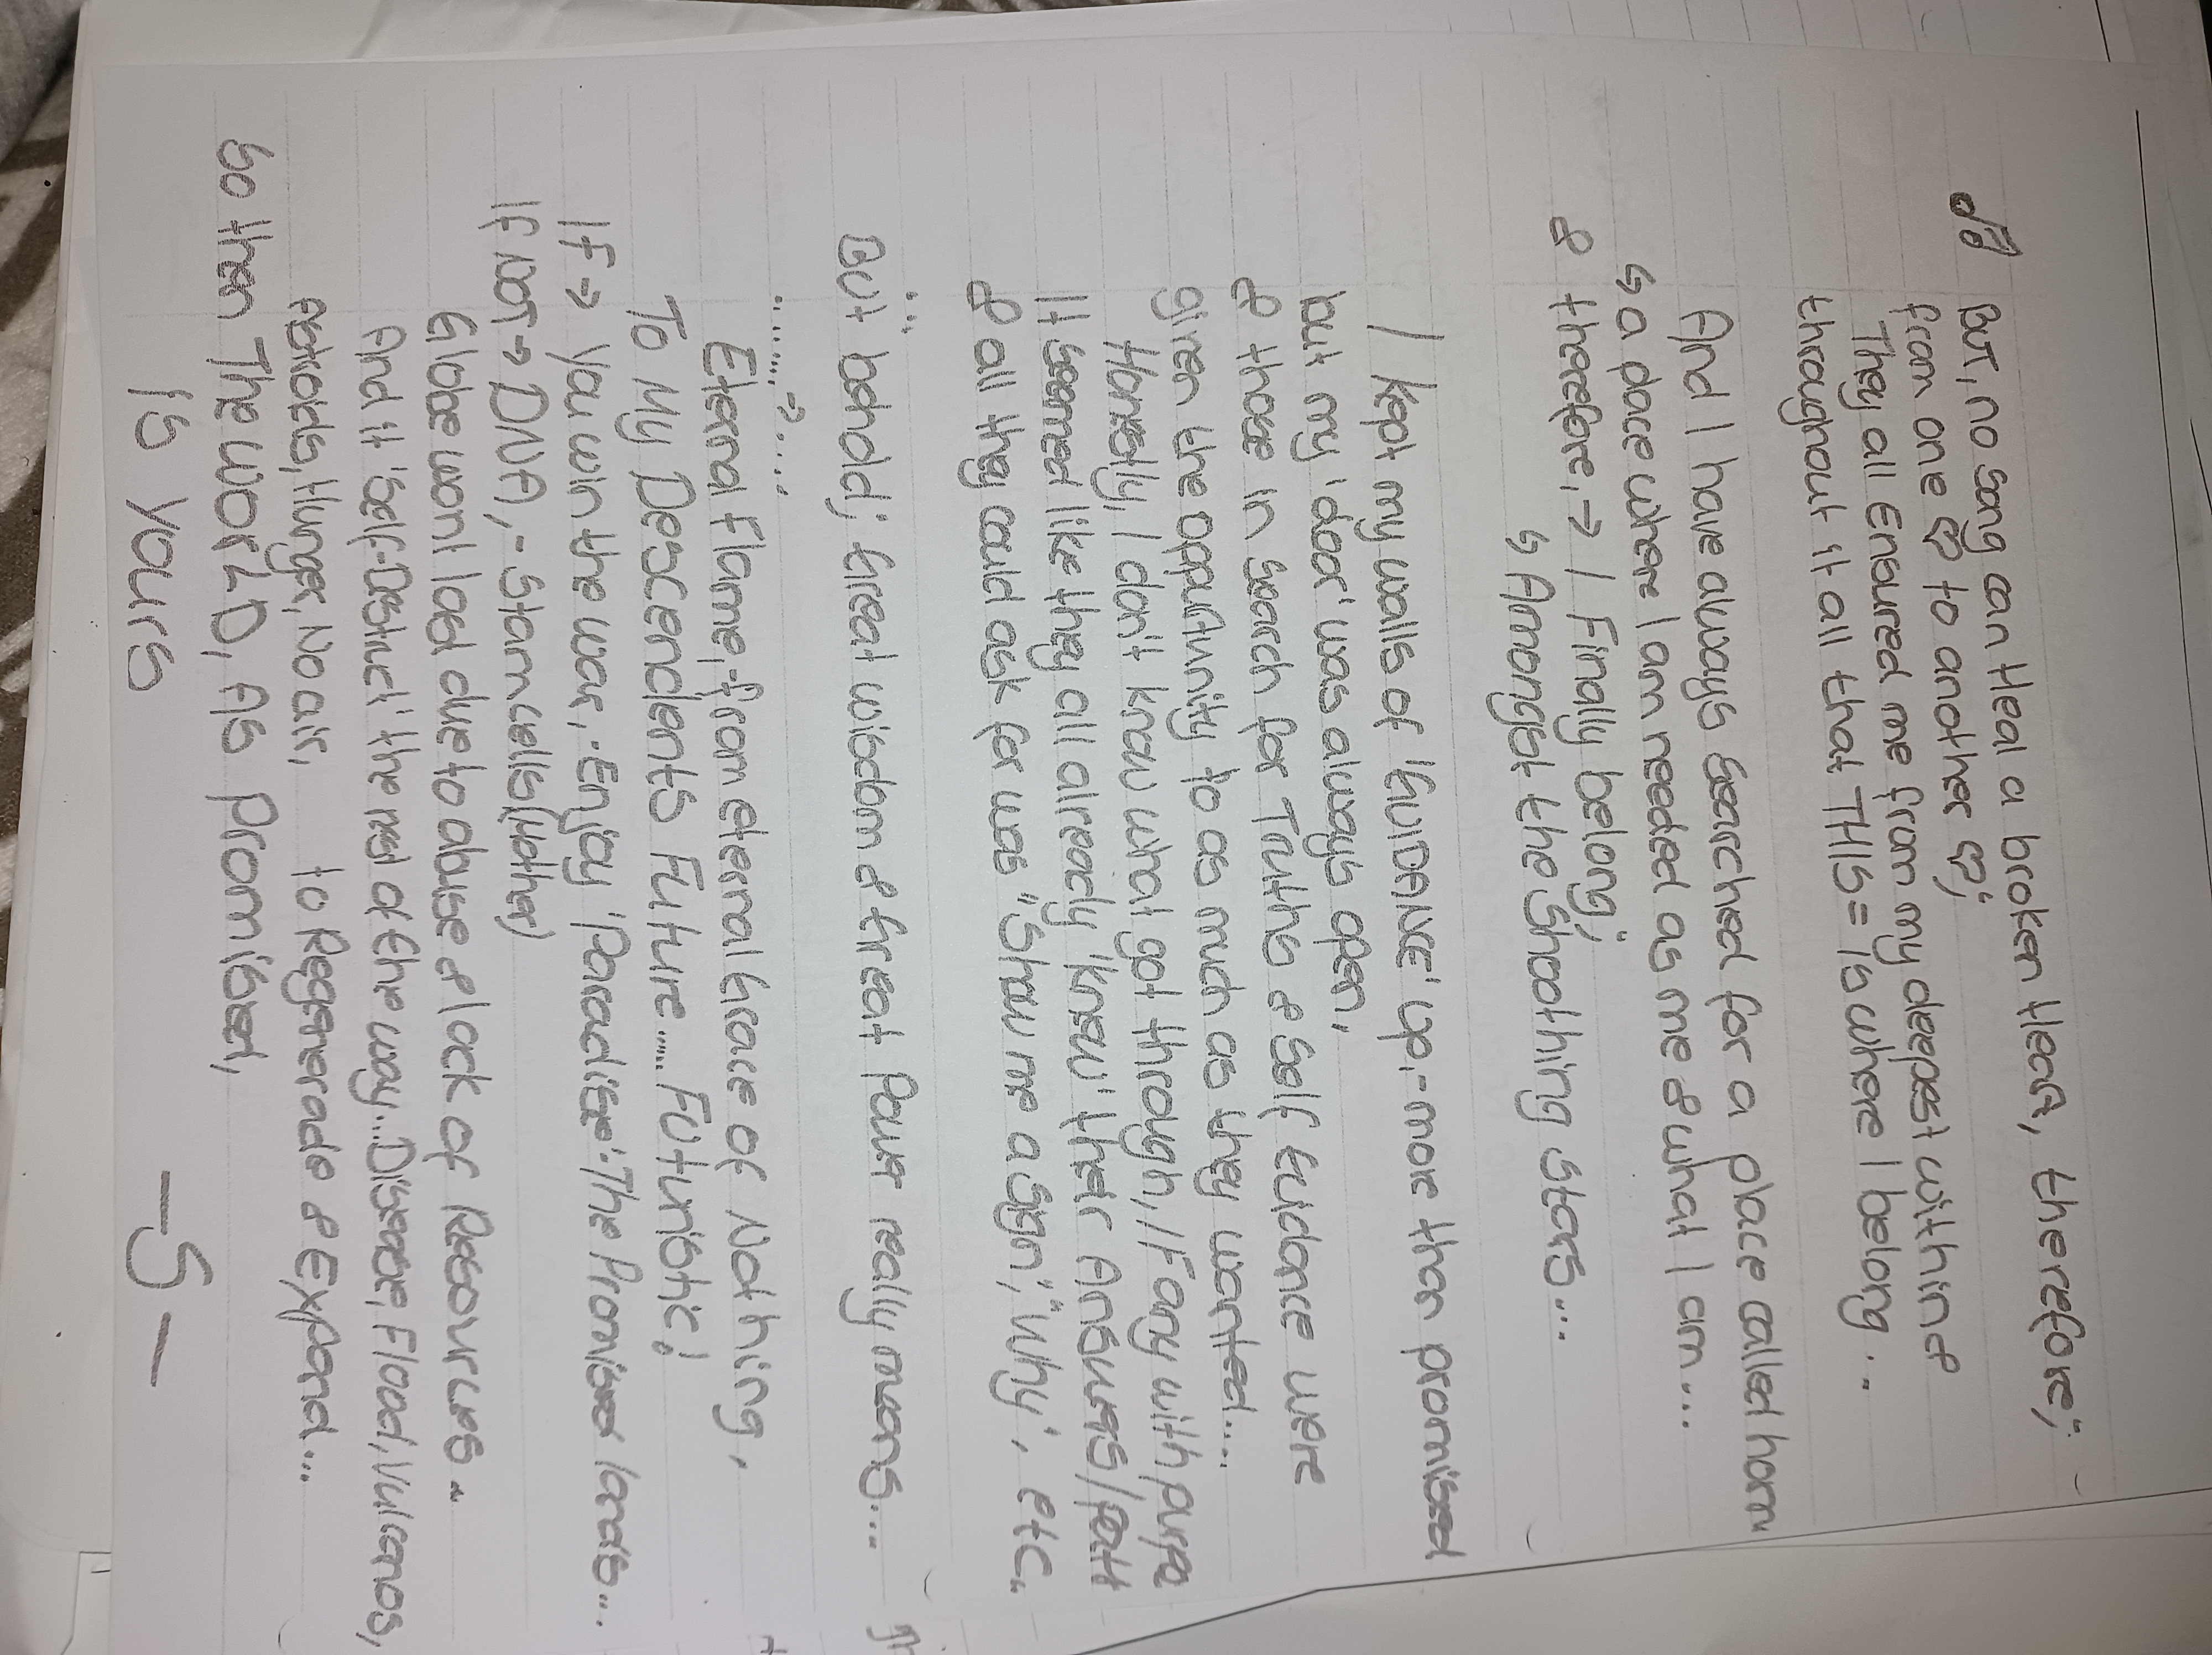 BUT, no song can Heal a broken Heart, therefore;
from one & to another &;
They all Ensured me from my deepest within &
throughout it all that THIS = is where I belong..
And I have always searched for a place called home,
so dare when I am needed as me & what I am....
& therefore; → I Finally belong;
↳ Amongst the shooting stars....
I kept my walls of up;- more then promised
but my 'door' was always open,
& those in search for Truths & self endure were
given the opportunity to as much as they wanted....
Honestly I dont know what got through, if any with pure
It seemed like they all already knew, their Answers/Path
& all they could ask for was, "Sign a Sign", "Why", etc.
But behold; great wisdom & great power really means....
......?.....
Eternal flame,- from eternal grace of Nothing,
To My Descendents Future..... Futuristic;
IF → You win the war.- Enjoy 'Paradise':-The Promised lands...
if NOT → DNA,- Stonewalls (within)
wont last due to abuse & lack of Resources..
And it self-destruct; the rest of the way... Disease, Flood, Vulcanos,
to Regenerade & Expand...
so then The WORLD, As promised,
Is Yours
- S -